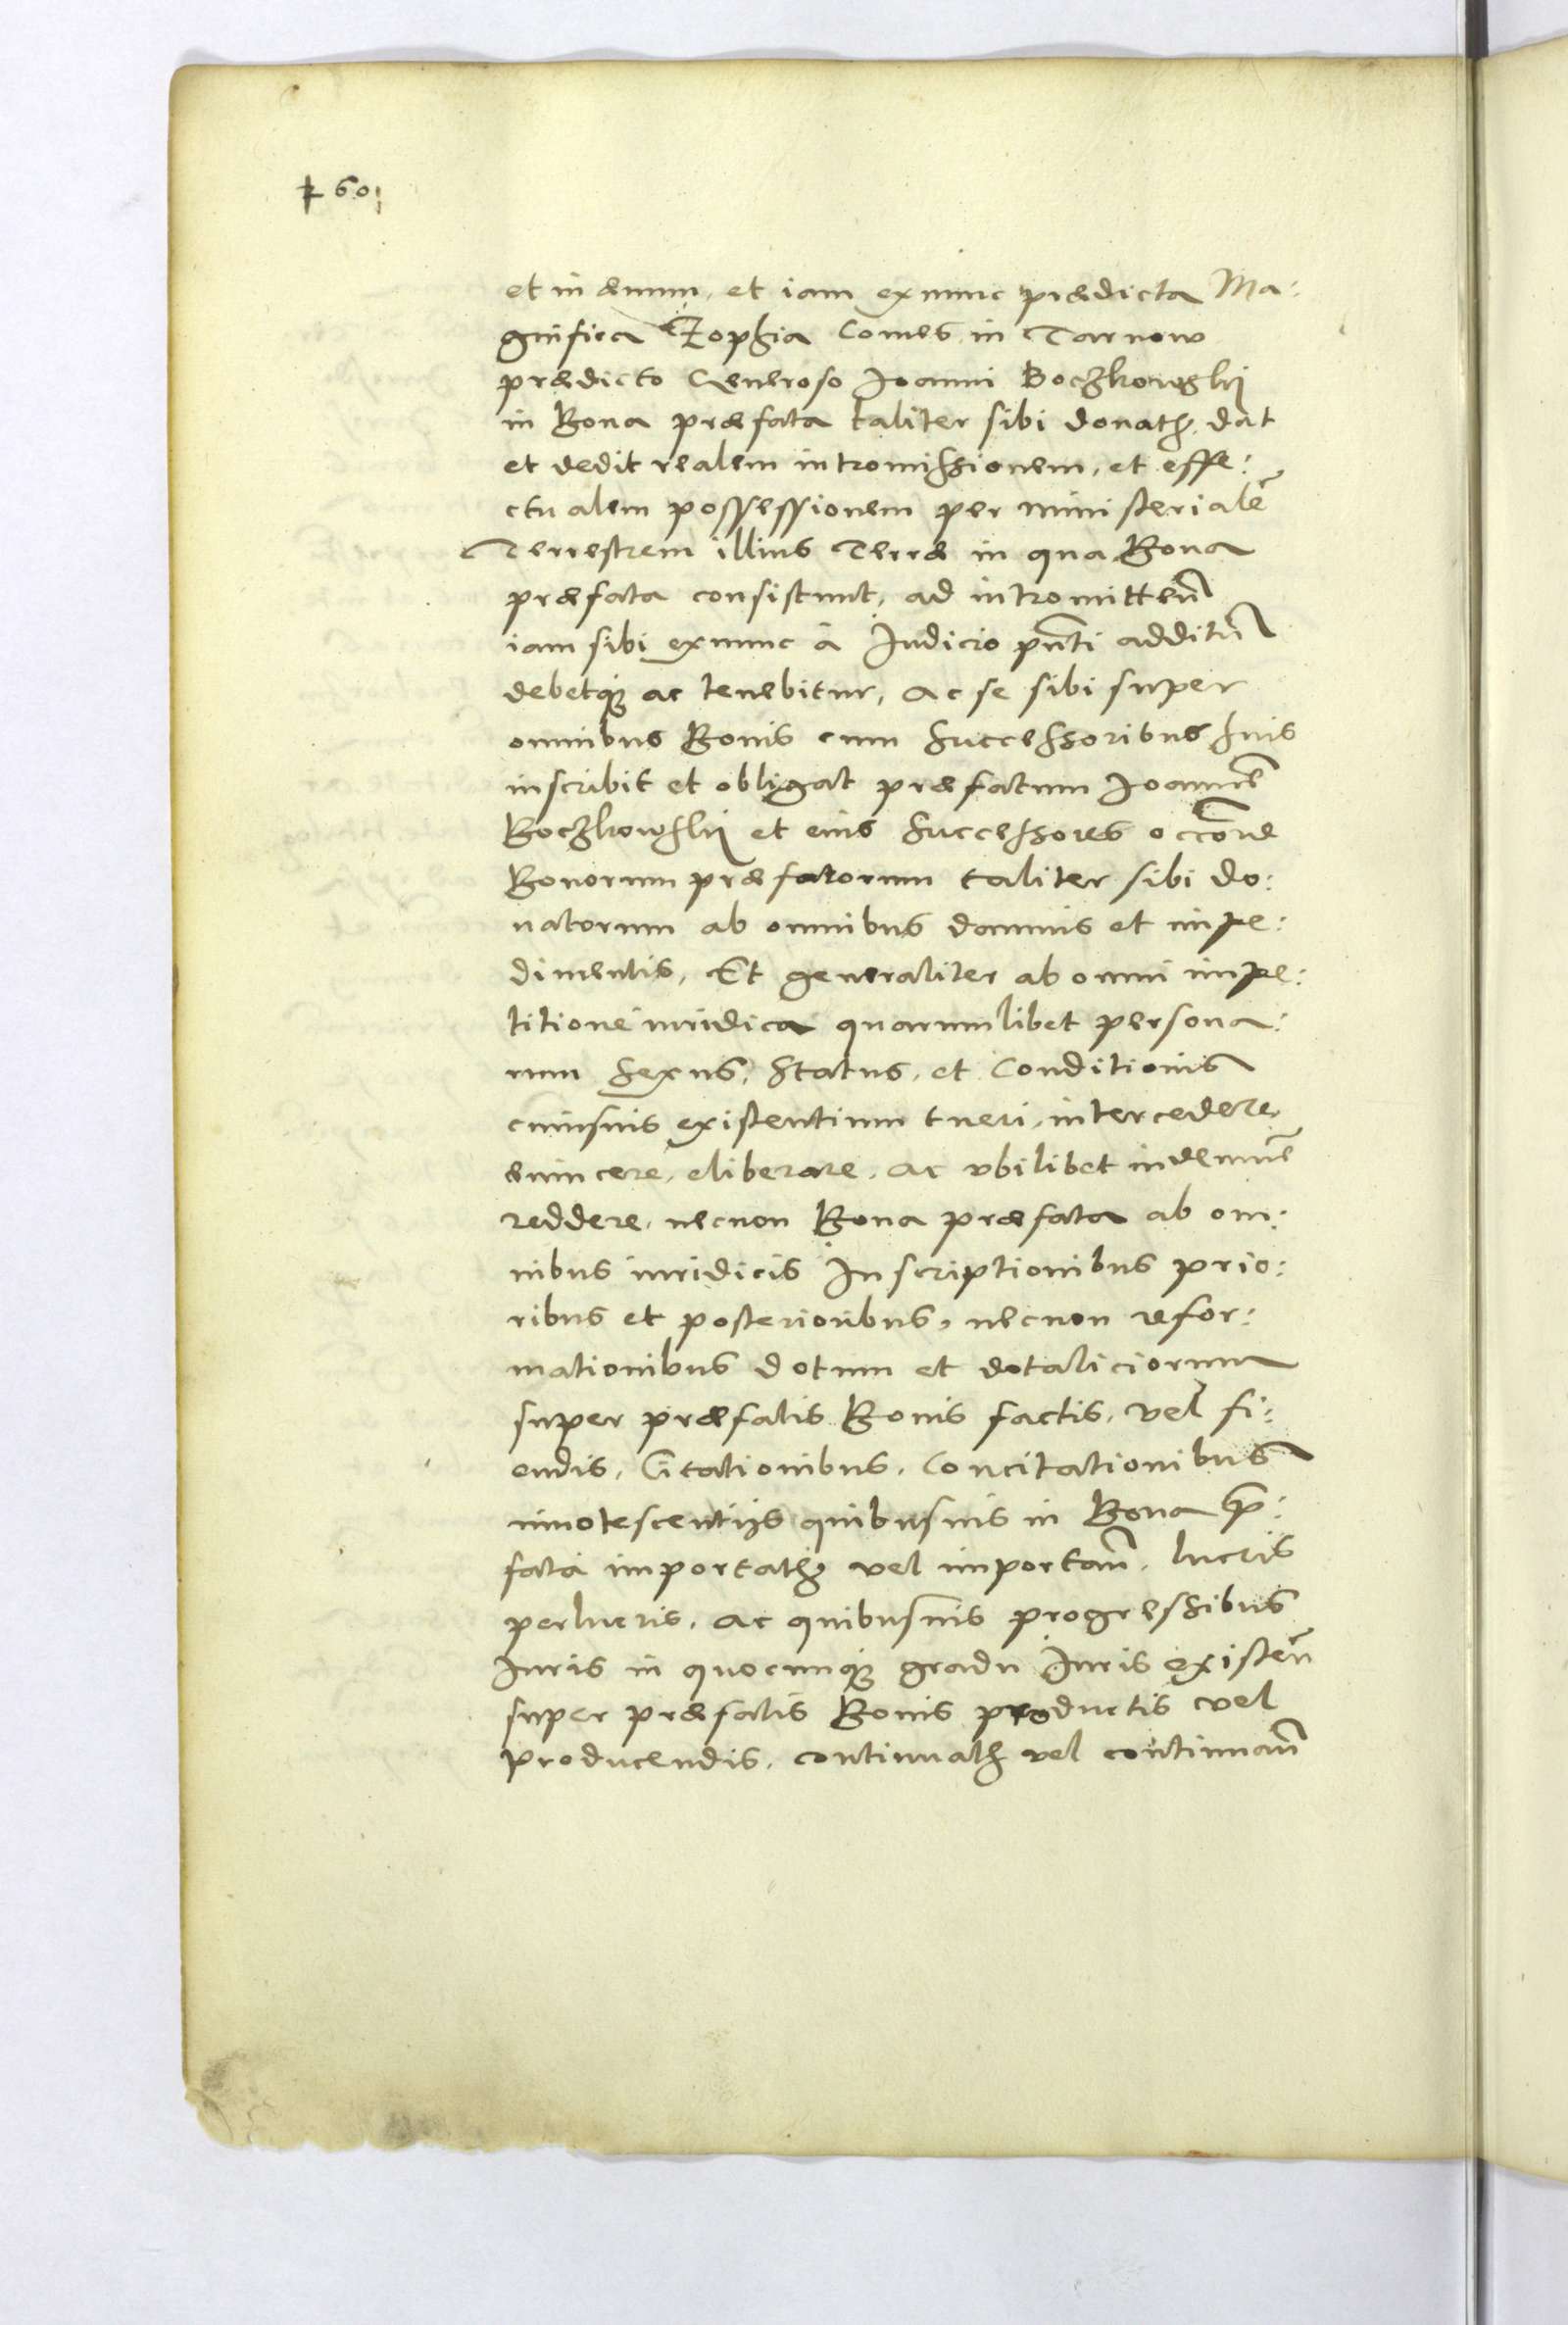 60
et in ævum, et iam exnunc prædicta Ma:
gnifica Zophia Comes in Tarnow
prædicto Generoso Joanni Boczkowskÿ
in Bona præfata taliter sibi donatꝫ dat
et dedit realem intromissionem, et effe:
ctualem possessionem per ministerialẽ
Terrestrem illius Terræ in qua Bona
præfata consistunt, ad intromitteñ
iam sibi exnunc à Judicio pñti additũ
debetq₃ ac tenebitur, Ac se sibi super
omnibus Bonis cum successoribus suis
inscribit et obligat præfatum Joannẽ
Boczkowskÿ et eius successores occõne
Bonorum præfatorum taliter sibi do:
natorum ab omnibus damnis et impe:
dimentis, Et generaliter ab omni impe:
titione iuridica quarumlibet persona:
rum sexus, status, et Conditionis
cuiusuis existentium tueri, intercedere,
euincere, eliberare, Ac vbilibet indemnẽ
reddere, necnon Bona præfata ab om:
nibus iuridicis Inscriptionibus prio:
ribus et posterioribus, necnon refor:
mationibus dotum et dotaliciorum
super præfatis Bonis factis, vel fi:
endis, Citationibus, Concitationibus
innotescentijs quibusuis in Bona p̃:
fata importatꝫ vel importañ, lucris
perlucris, Ac quibusuis progressibus
Juris in quocunq₃ gradu Juris existeñ
super præfatis Bonis productis vel
producendis, continuatꝫ vel continuañ